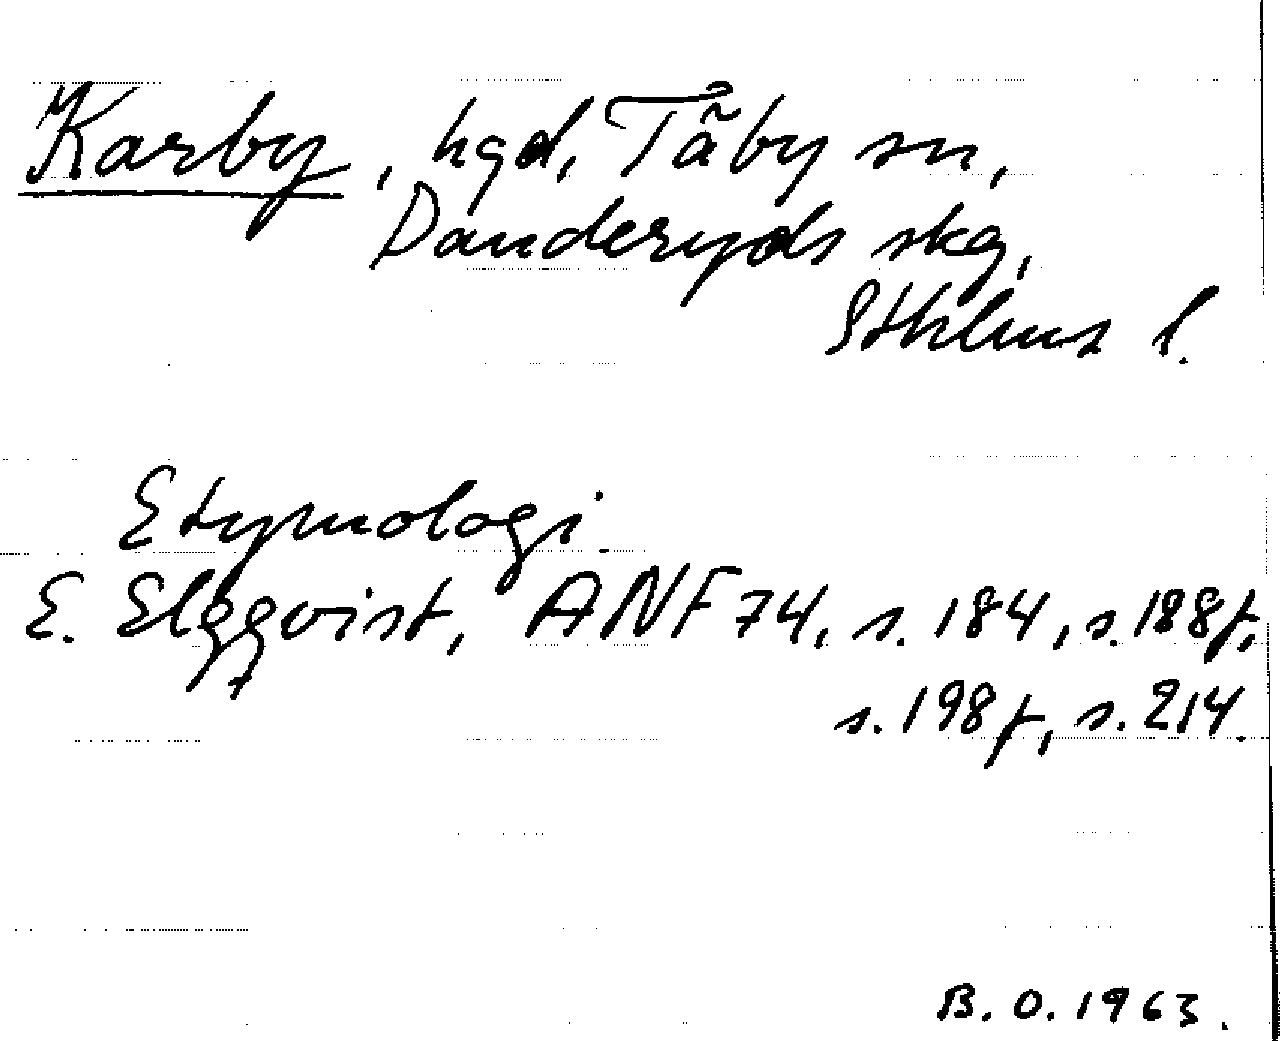 Karby, hgd, Täby sn,
Danderyds skg,
Sthlms l.
Etymologi
E. Elgqvist, ANF 74, s. 184, s. 188f,
s. 198f, s. 214.
B. O. 1963.